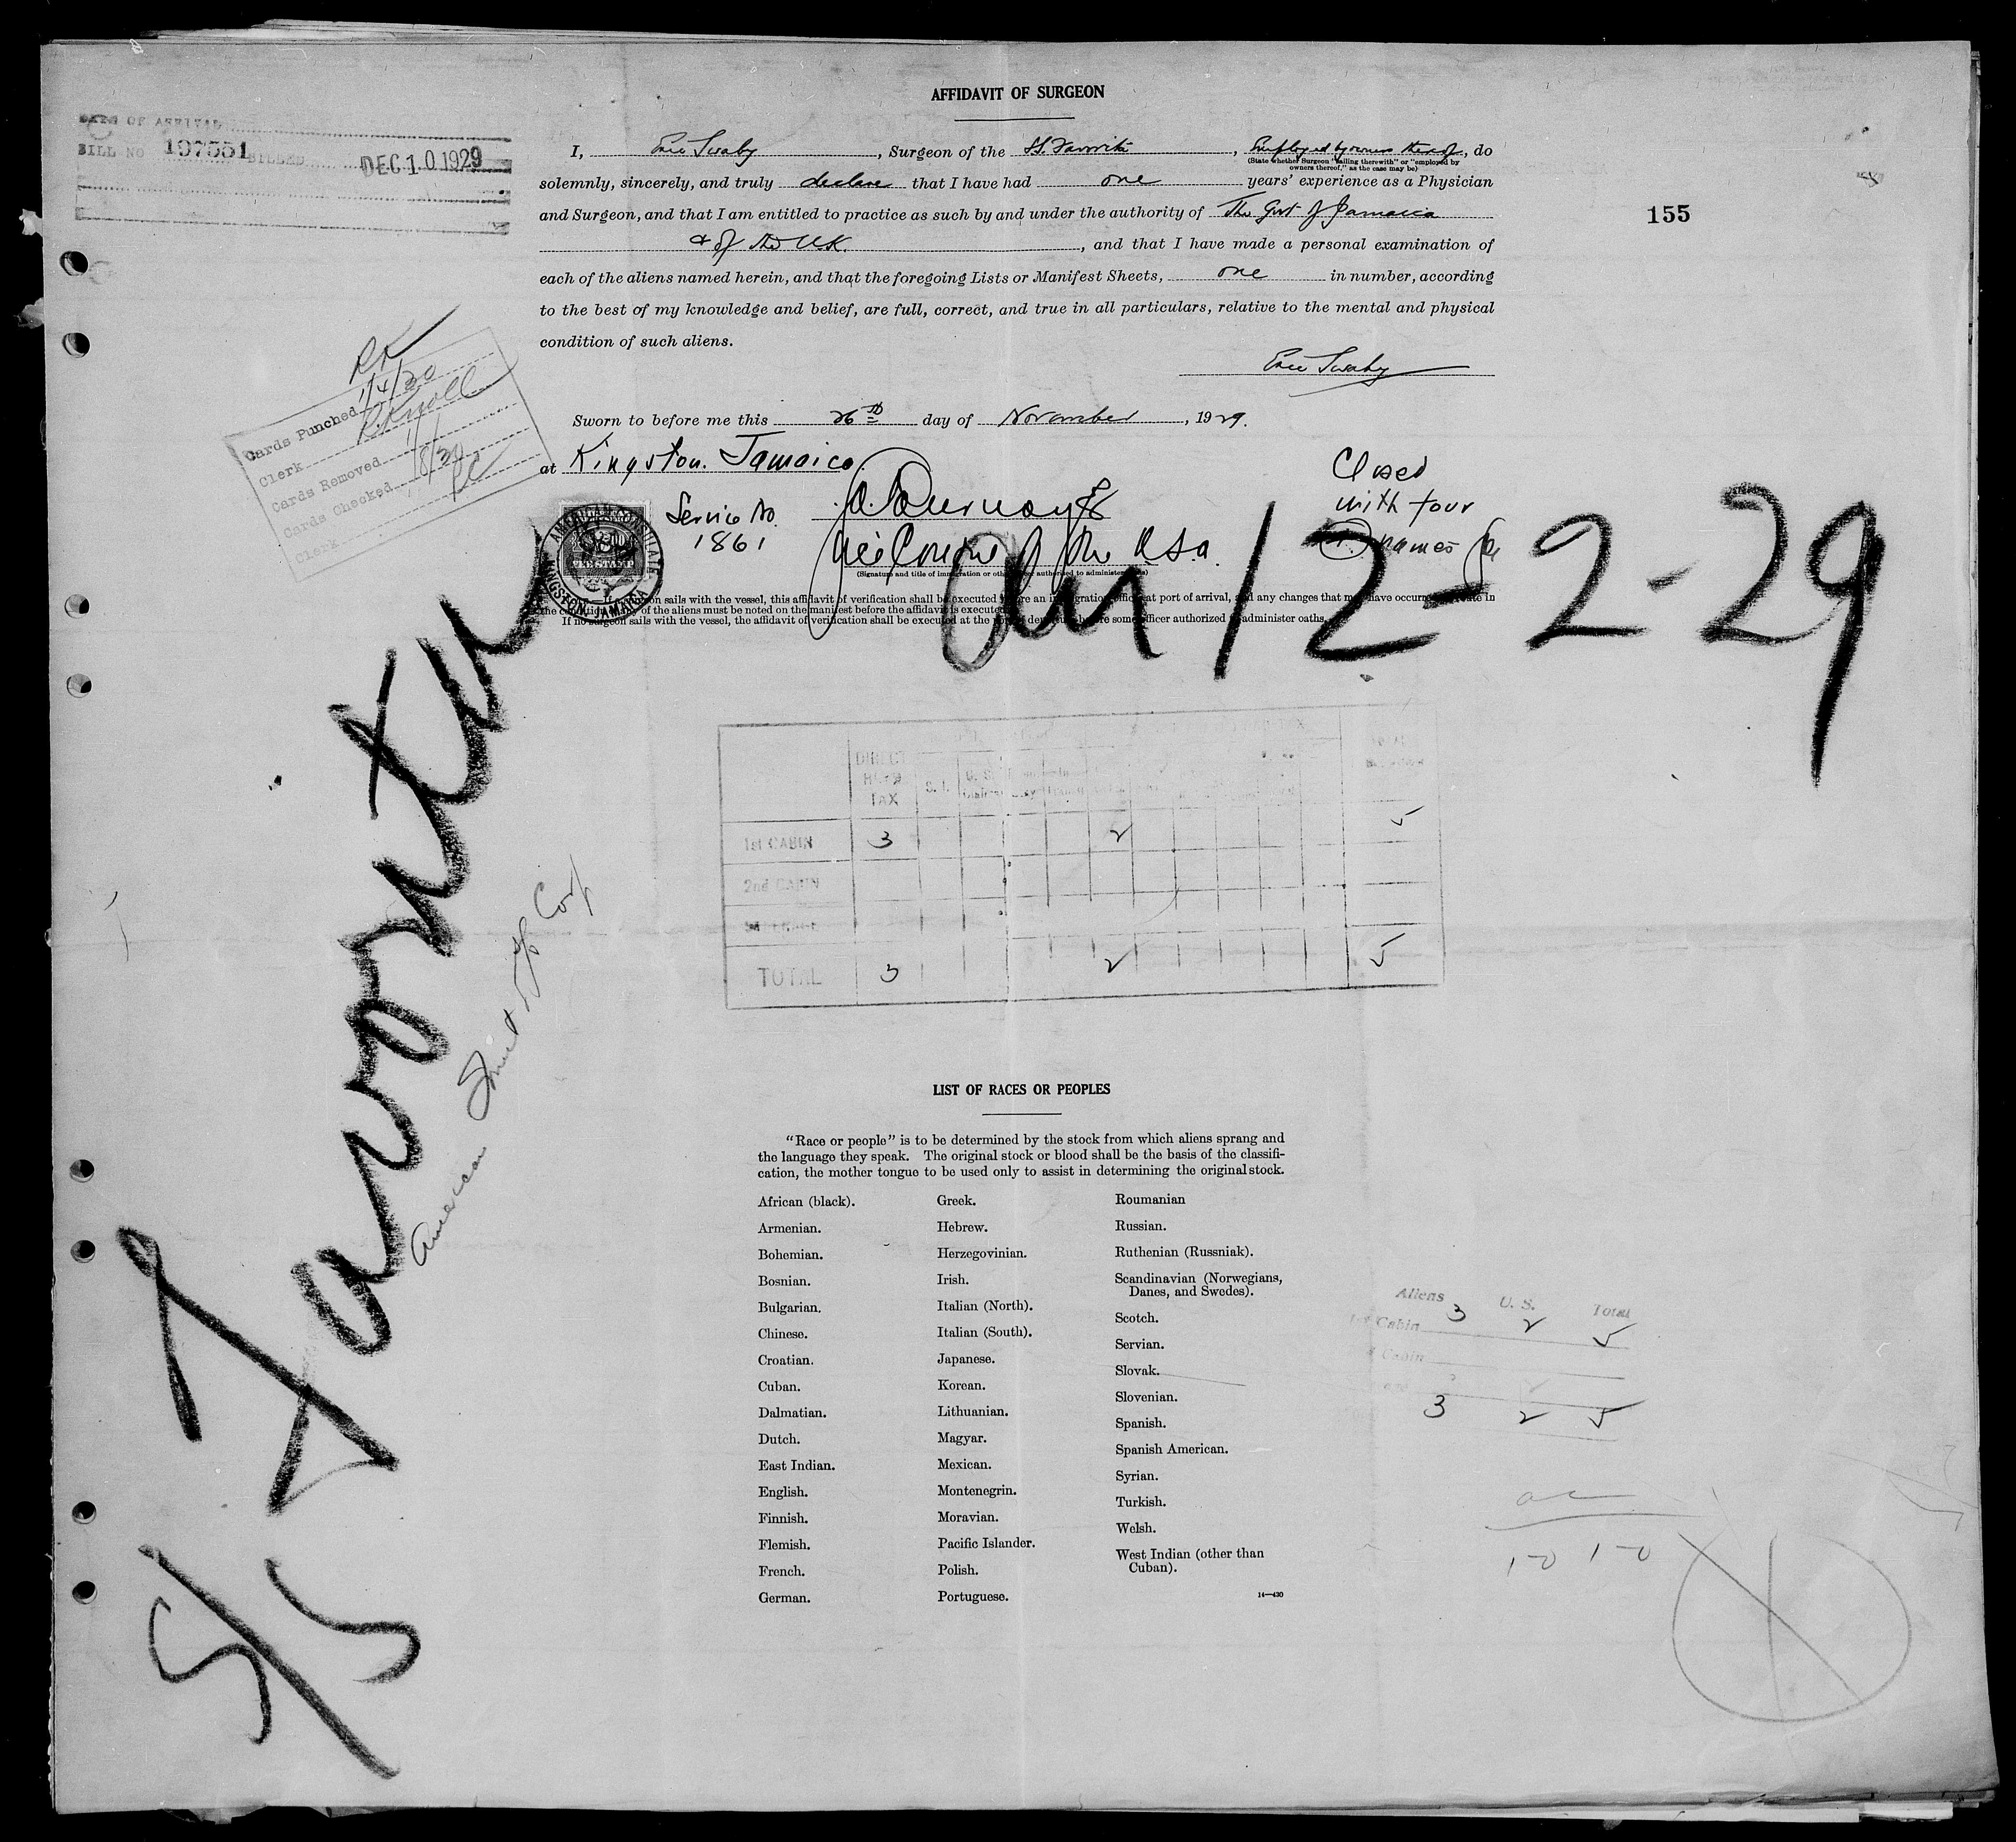 AFFIDAVIT OF SURGEON
DATE OF ARRIVAL
BILL NO 197551 BILLED DEC 10 1929
155
I, Eric Swaby, Surgeon of the SS. Favorita, Employed by owners thereof, do
(State whether Surgeon "sailing therewith" or "employed by
owners thereof," as the case may be)
solemnly, sincerely, and truly declare that I have had one years' experience as a Physician
and Surgeon, and that I am entitled to practice as such by and under the authority of The Govt of Jamaica
& of the U.K., and that I have made a personal examination of
each of the aliens named herein, and that the foregoing Lists or Manifest Sheets, one in number, according
to the best of my knowledge and belief, are full, correct, and true in all particulars, relative to the mental and physical
condition of such aliens.
Eric Swaby
Sworn to before me this 26th day of November, 1929.
at Kingston. Jamaica
RK
Cards Punched 1/4/30
Clerk R Knoll
Cards Removed
Cards Checked 1/8/30
Clerk
AMERICAN CONSULATE
FEE STAMP
KINGSTON, JAMAICA
Service No.
1861
Vice Consul of the U.S.A.
(Signature and title of immigration or other officer authorized to administer oaths)
Closed
with four
names
If a surgeon sails with the vessel, this affidavit of verification shall be executed before an immigration officer at port of arrival, and any changes that may have occurred en route in
the condition of any of the aliens must be noted on the manifest before the affidavit is executed.
If no surgeon sails with the vessel, the affidavit of verification shall be executed at the port of departure before some officer authorized to administer oaths.
Arr 12-2-29
S/S Favorita
American Fruit & SS Corp
DIRECT
HEAD
TAX
S. I.
1st CABIN 3 2 5
2nd CABIN
TOTAL 3 2 5
LIST OF RACES OR PEOPLES
"Race or people" is to be determined by the stock from which aliens sprang and
the language they speak. The original stock or blood shall be the basis of the classifi-
cation, the mother tongue to be used only to assist in determining the original stock.
African (black).
Armenian.
Bohemian.
Bosnian.
Bulgarian.
Chinese.
Croatian.
Cuban.
Dalmatian.
Dutch.
East Indian.
English.
Finnish.
Flemish.
French.
German.
Greek.
Hebrew.
Herzegovinian.
Irish.
Italian (North).
Italian (South).
Japanese.
Korean.
Lithuanian.
Magyar.
Mexican.
Montenegrin.
Moravian.
Pacific Islander.
Polish.
Portuguese.
Roumanian
Russian.
Ruthenian (Russniak).
Scandinavian (Norwegians,
Danes, and Swedes).
Scotch.
Servian.
Slovak.
Slovenian.
Spanish.
Spanish American.
Syrian.
Turkish.
Welsh.
West Indian (other than
Cuban).
14—430
Aliens U. S. Total
Cabin 3 2 5
Cabin
3 2 5